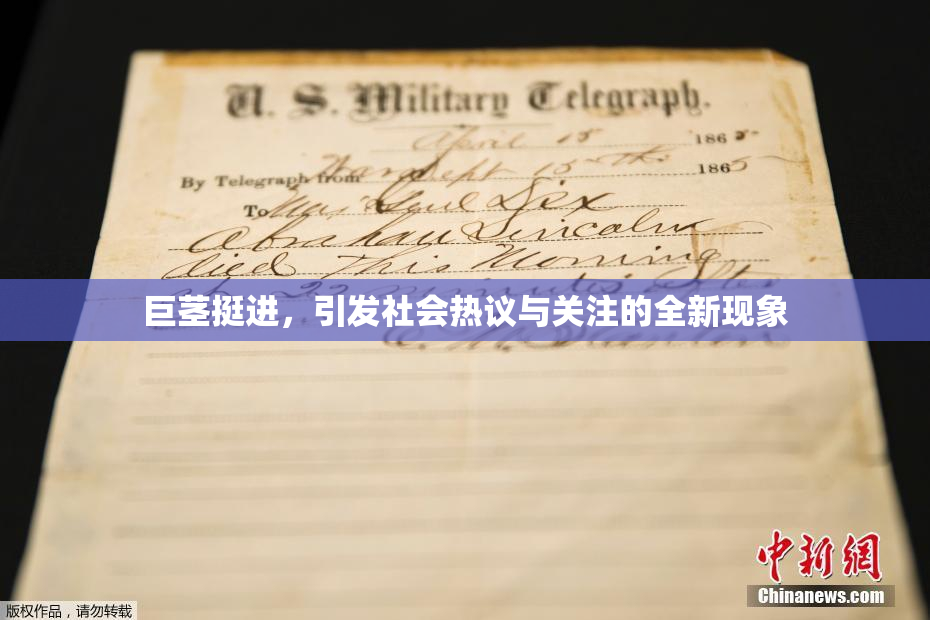 U. S. Military Telegraph.
April 15 1865
By Telegraph from War Dept 15th 1865
To Maj Genl Dix
Abraham Lincoln
died This Morning
22 minutes after
巨茎挺进，引发社会热议与关注的全新现象
E. M. Stanton
中新網
Chinanews.com
版权作品，请勿转载